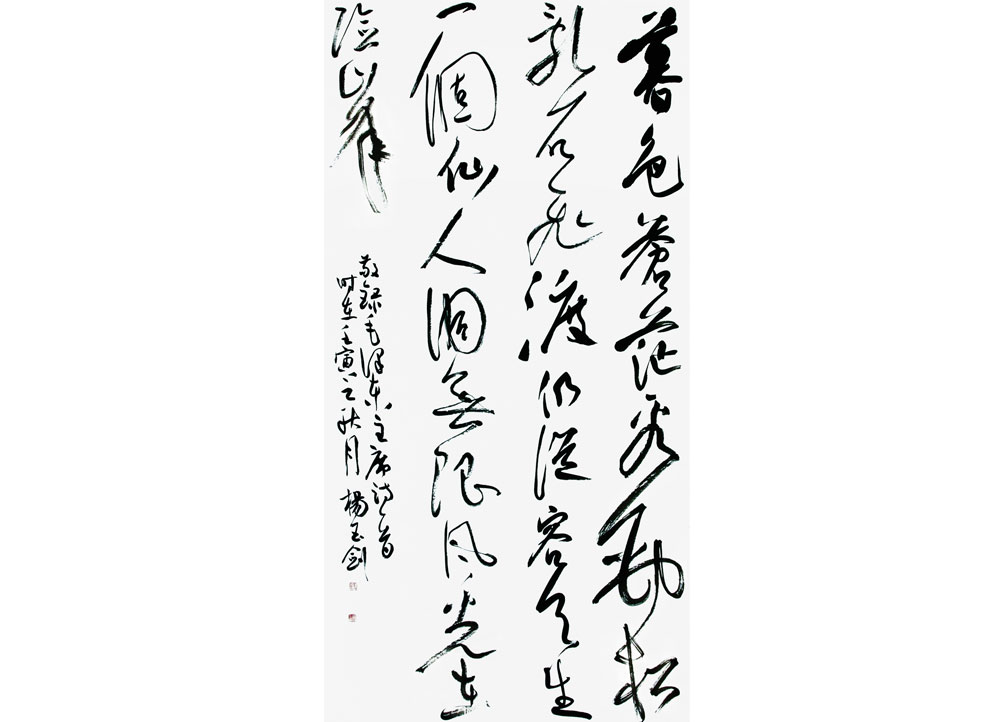 暮色蒼茫看勁松
亂云飛渡仍從容天生
一個仙人洞無限風光在
險峯
敬録毛澤東主席詩一首
时在壬寅之秋月 楊玉劍